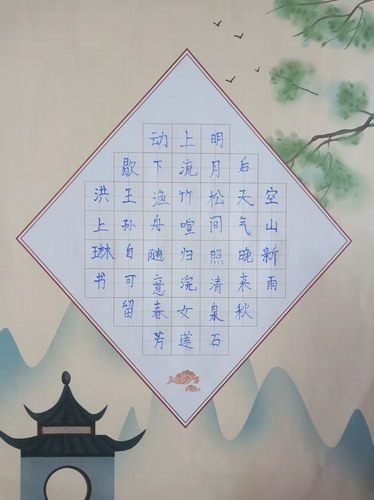 空山新雨
后天气晚来秋
明月松间照清泉石
上流竹喧归浣女莲
动下渔舟随意春芳
歇王孙自可留
洪上琳书